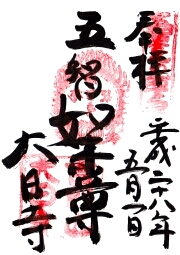 奉拝
平成二十八年
五月一日
五智如来尊
大日寺